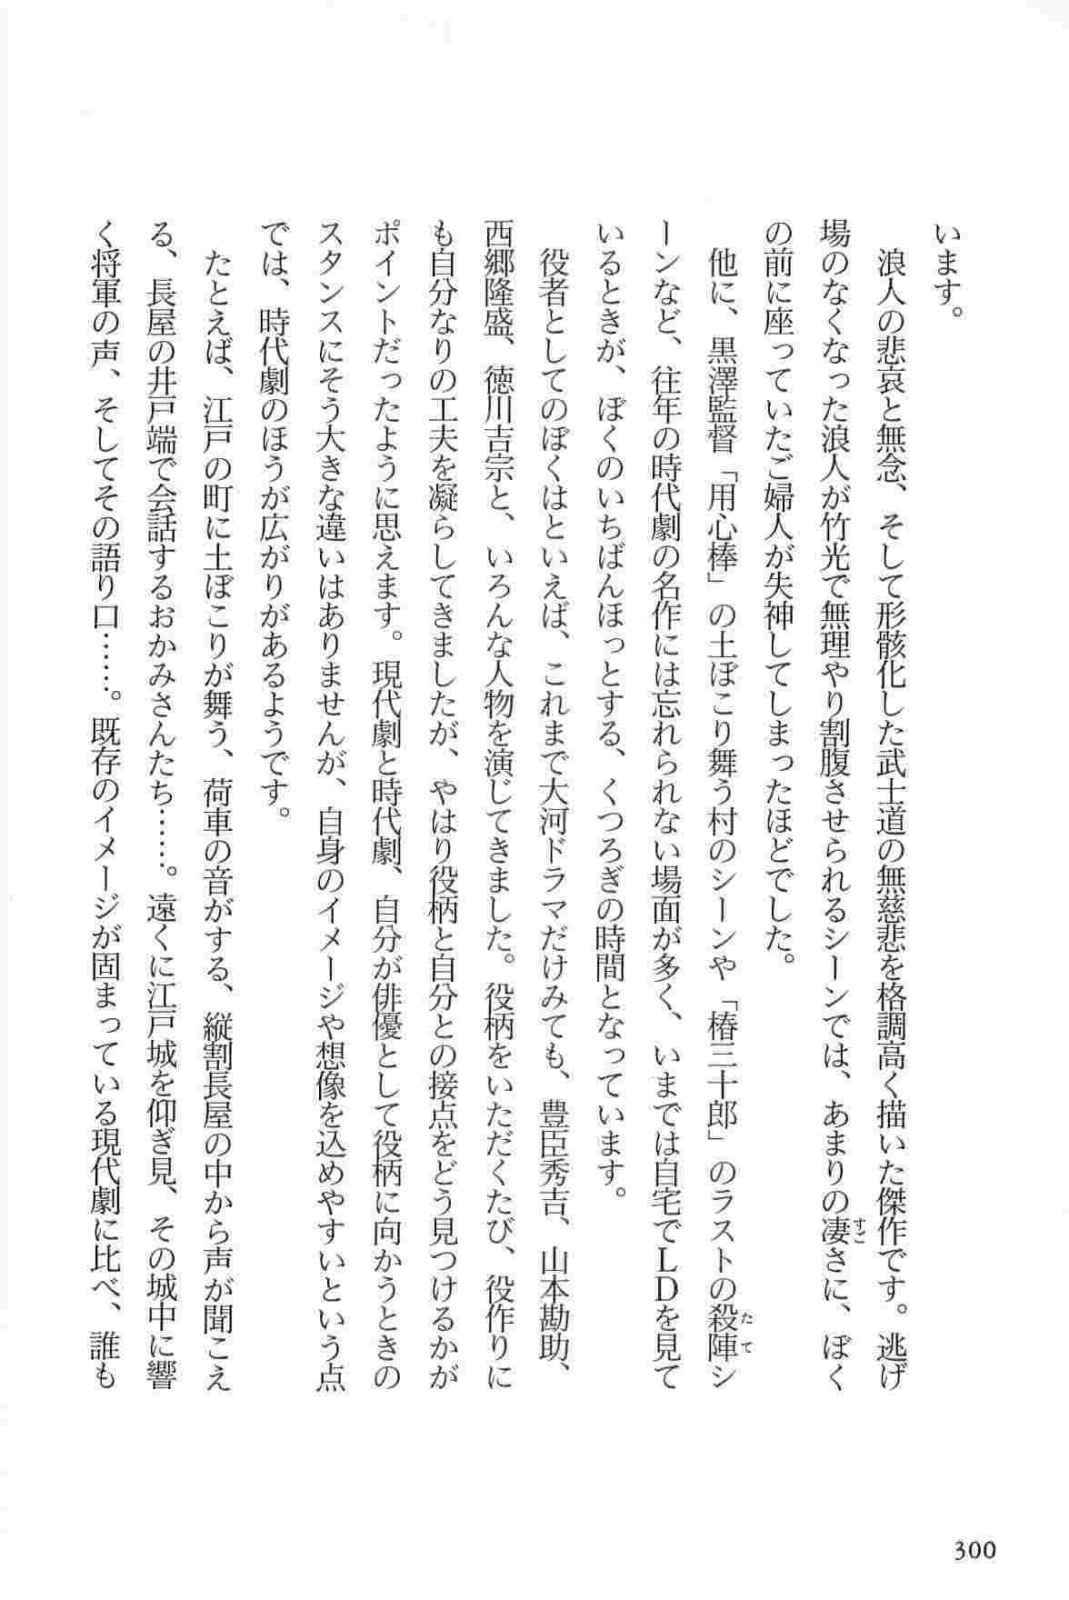 います。
浪人の悲哀と無念、そして形骸化した武士道の無慈悲を格調高く描いた傑作です。逃げ
場のなくなった浪人が竹光で無理やり割腹させられるシーンでは、あまりの凄さに、ぼく
の前に座っていたご婦人が失神してしまったほどでした。
他に、黒澤監督「用心棒」の土ぼこり舞う村のシーンや「椿三十郎」のラストの殺陣シ
ーンなど、往年の時代劇の名作には忘れられない場面が多く、いまでは自宅でLDを見て
いるときが、ぼくのいちばんほっとする、くつろぎの時間となっています。
役者としてのぼくはといえば、これまで大河ドラマだけみても、豊臣秀吉、山本勘助、
西郷隆盛、徳川吉宗と、いろんな人物を演じてきました。役柄をいただくたび、役作りに
も自分なりの工夫を凝らしてきましたが、やはり役柄と自分との接点をどう見つけるかが
ポイントだったように思えます。現代劇と時代劇、自分が俳優として役柄に向かうときの
スタンスにそう大きな違いはありませんが、自身のイメージや想像を込めやすいという点
では、時代劇のほうが広がりがあるようです。
たとえば、江戸の町に土ぼこりが舞う、荷車の音がする、縦割長屋の中から声が聞こえ
る、長屋の井戸端で会話するおかみさんたち……。遠くに江戸城を仰ぎ見、その城中に響
く将軍の声、そしてその語り口……。既存のイメージが固まっている現代劇に比べ、誰も
300